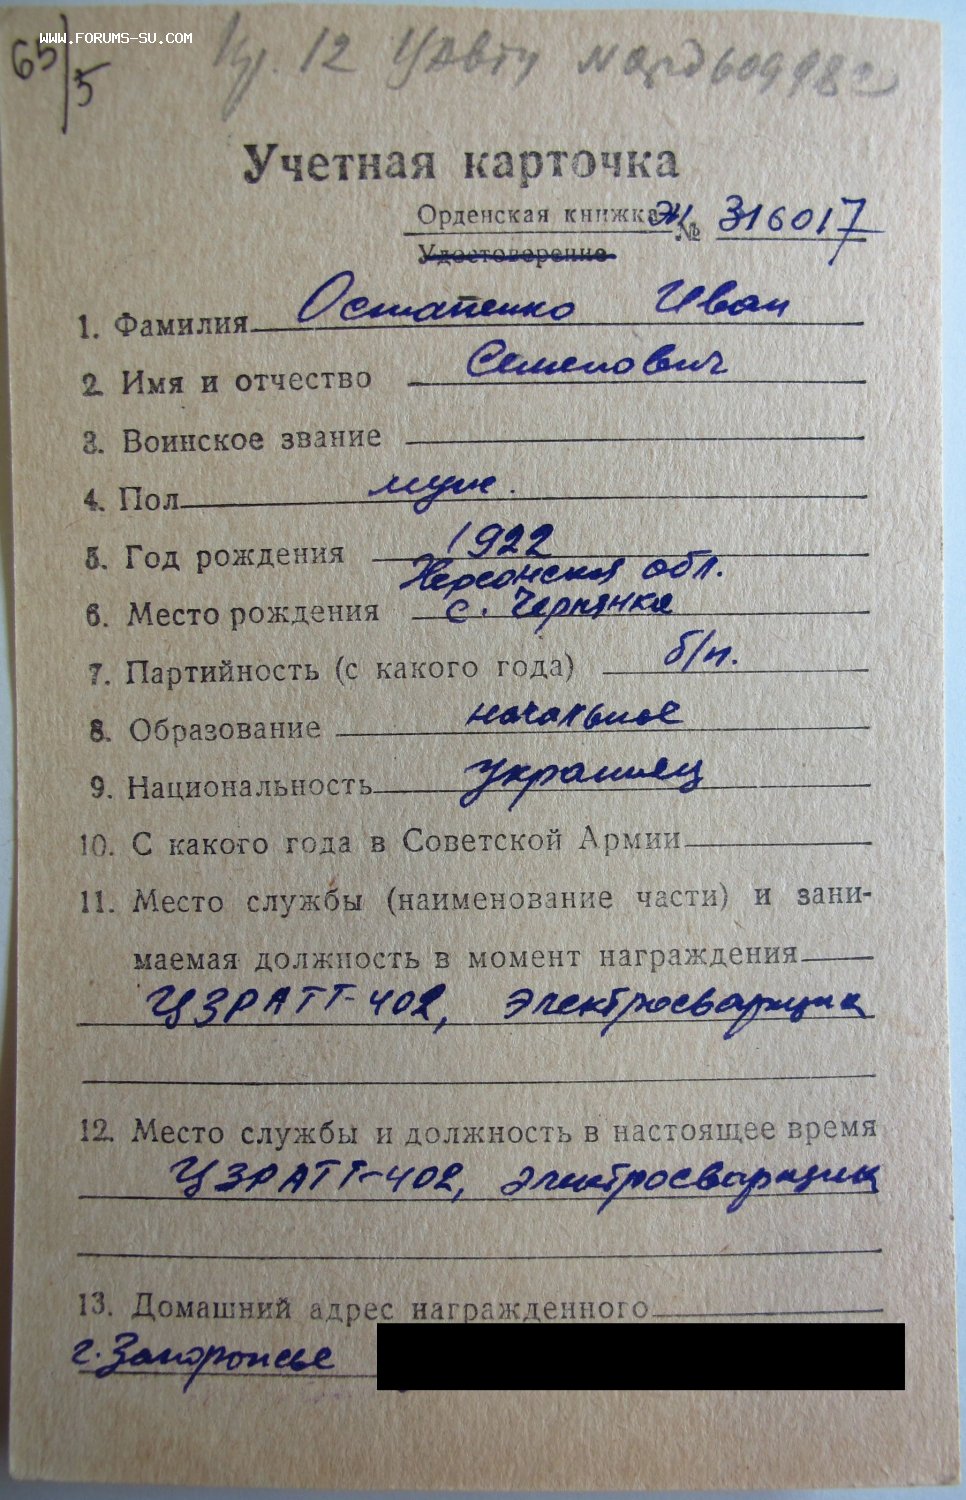 www.forums-su.com
65/5
12
Учетная карточка
Орденская книжка Ж № 316017
Удостоверение
1. Фамилия Остапенко Иван
2. Имя и отчество Семенович
3. Воинское звание
4. Пол муж.
5. Год рождения 1922
Херсонская обл.
6. Место рождения с. Чернянка
7. Партийность (с какого года) б/п.
8. Образование начальное
9. Национальность украинец
10. С какого года в Советской Армии
11. Место службы (наименование части) и зани-
маемая должность в момент награждения
ЦЗРАТТ-402, электросварщик
12. Место службы и должность в настоящее время
ЦЗРАТТ-402, электросварщик
13. Домашний адрес награжденного
г. Запорожье